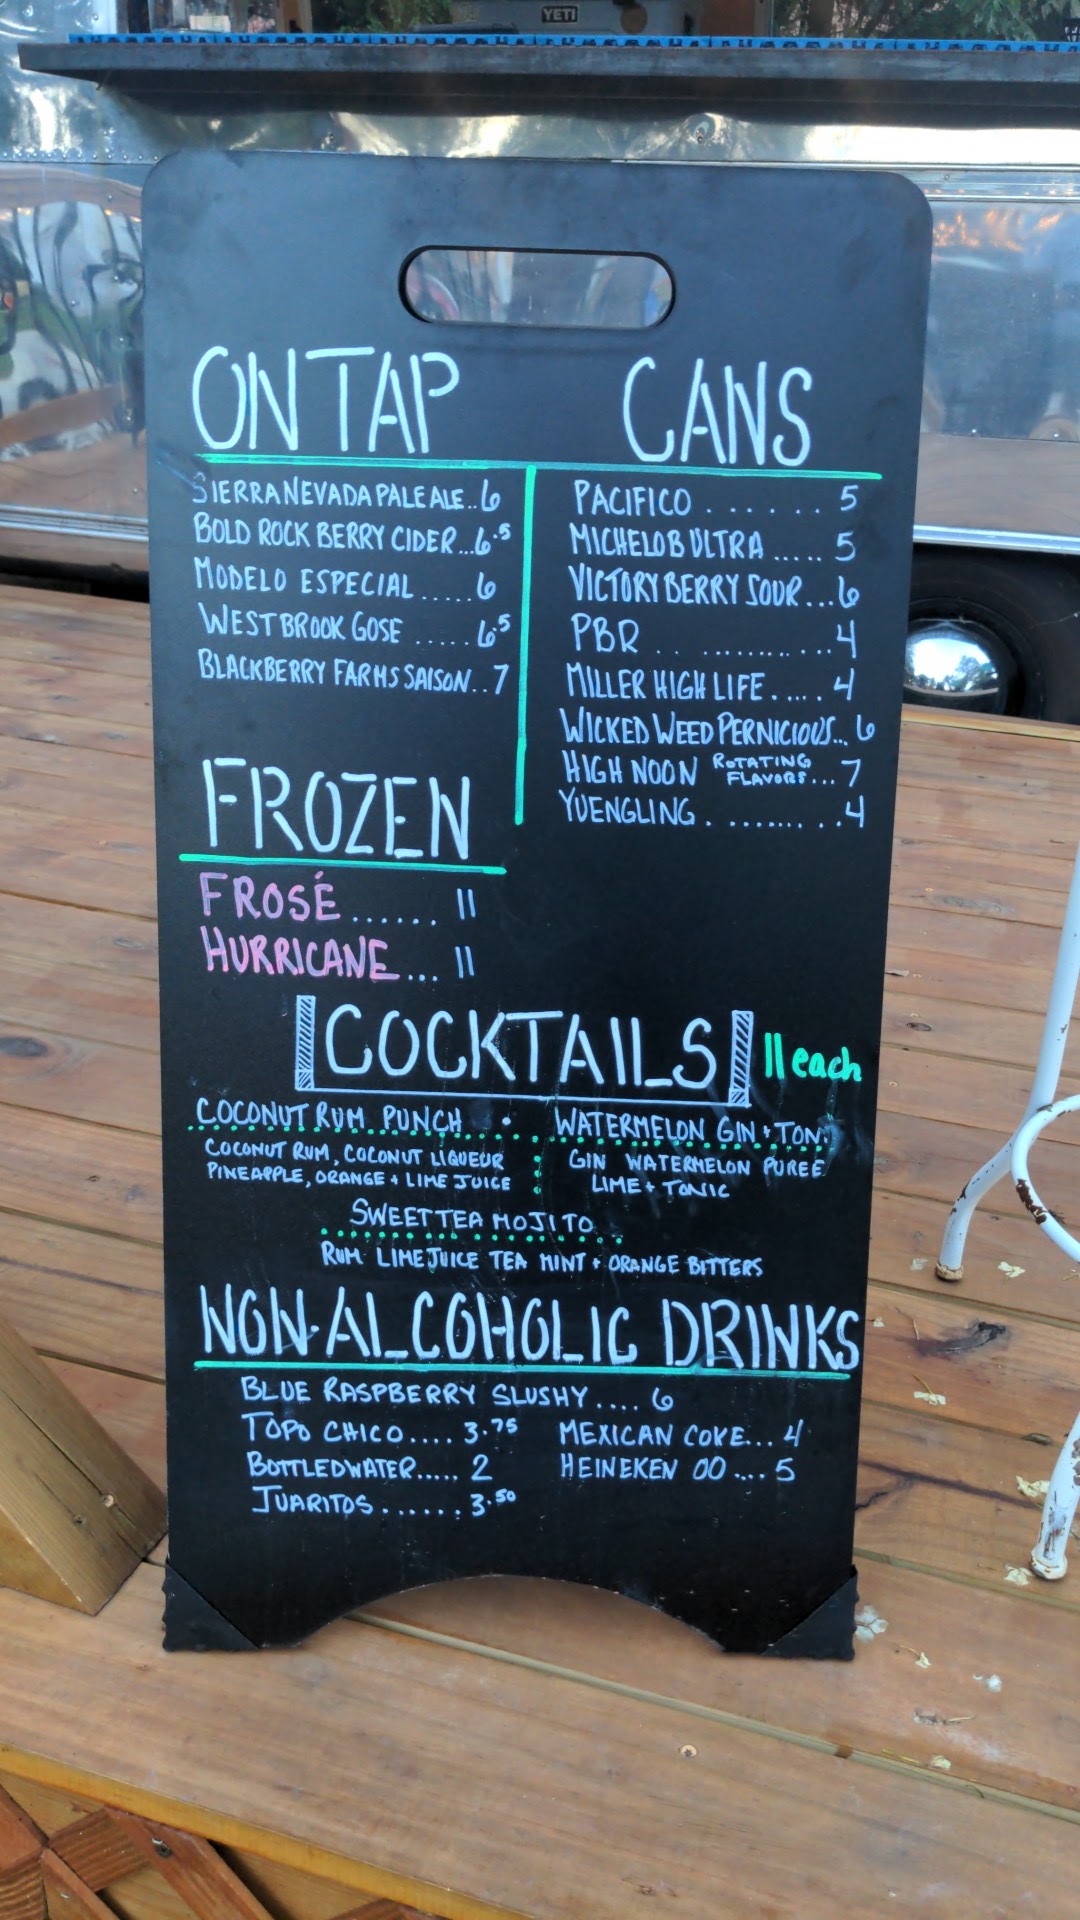 YETI
ON TAP
SIERRA NEVADA PALE ALE..6
BOLD ROCK BERRY CIDER...6.5
MODELO ESPECIAL.....6
WESTBROOK GOSE .....6.5
BLACKBERRY FARMS SAISON..7
CANS
PACIFICO ...... 5
MICHELOB ULTRA ..... 5
VICTORY BERRY SOUR...6
PBR .. ......... ...4
MILLER HIGH LIFE ..... 4
WICKED WEED PERNICIOUS... 6
HIGH NOON ROTATING FLAVORS...7
YUENGLING ........ ..4
FROZEN
FROSÉ ...... 11
HURRICANE... 11
COCKTAILS 11 each
COCONUT RUM PUNCH
COCONUT RUM, COCONUT LIQUEUR
PINEAPPLE, ORANGE + LIME JUICE
WATERMELON GIN + TONI
GIN WATERMELON PUREE
LIME + TONIC
SWEET TEA MOJITO
RUM LIME JUICE TEA MINT + ORANGE BITTERS
NON-ALCOHOLIC DRINKS
BLUE RASPBERRY SLUSHY.... 6
TOPO CHICO.... 3.75
BOTTLED WATER..... 2
JUARITOS ...... 3.50
MEXICAN COKE... 4
HEINEKEN 00 .... 5